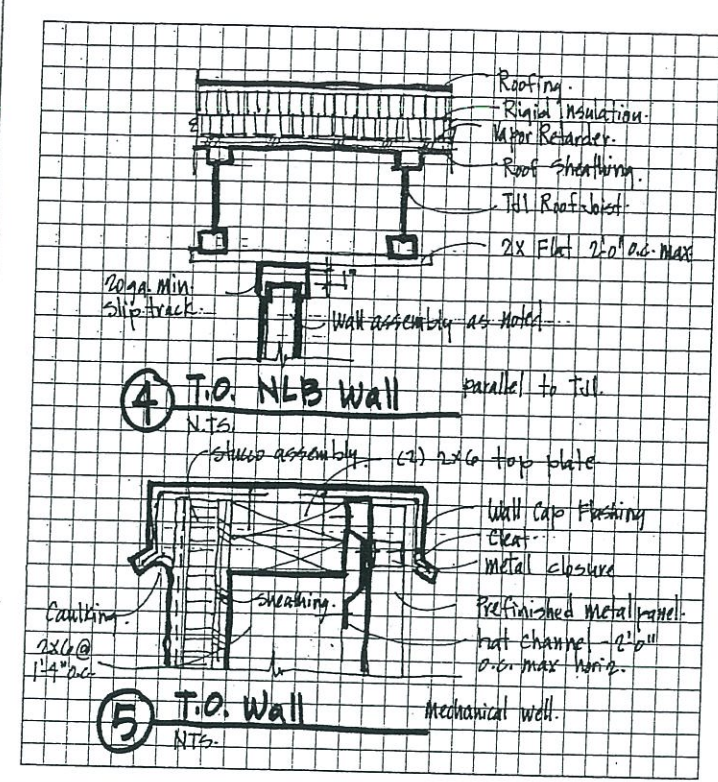 Roofing.
Rigid Insulation.
Vapor Retarder.
Roof Sheathing.
TJI Roof Joist.
2x Flat 2'0" o.c. max
1"
20 ga. min.
slip track.
Wall assembly as noted
4 T.O. NLB Wall parallel to TJI.
N.T.S.
stucco assembly. (2) 2x6 top plate
Wall Cap Flashing
Cleat
metal closure
Prefinished metal panel.
hat channel - 2'0"
o.c. max horiz.
Caulking.
Sheathing.
2x6 @
1'4" o.c.
5 T.O. Wall Mechanical well.
NTS.